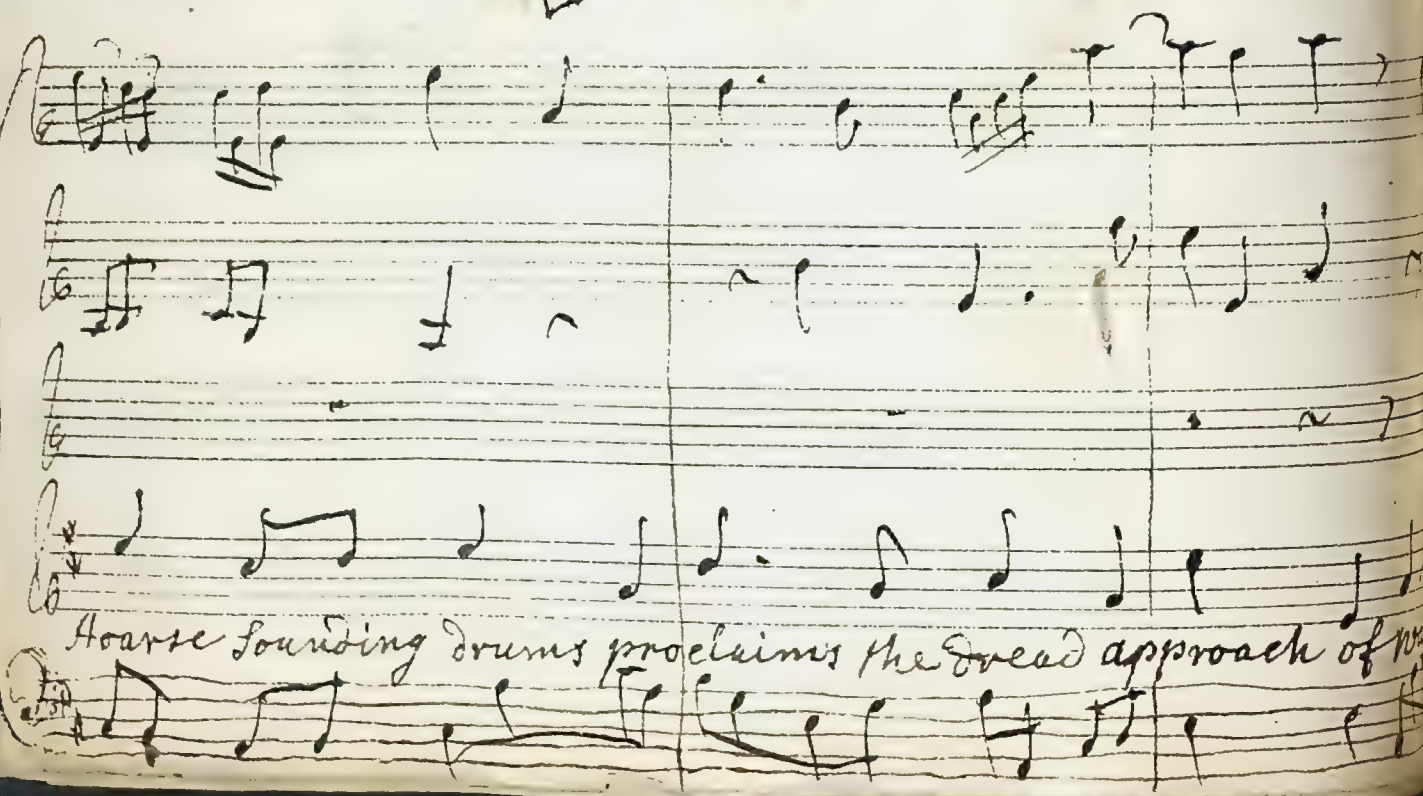 Hoarse sounding drums proclaims the dread approach of